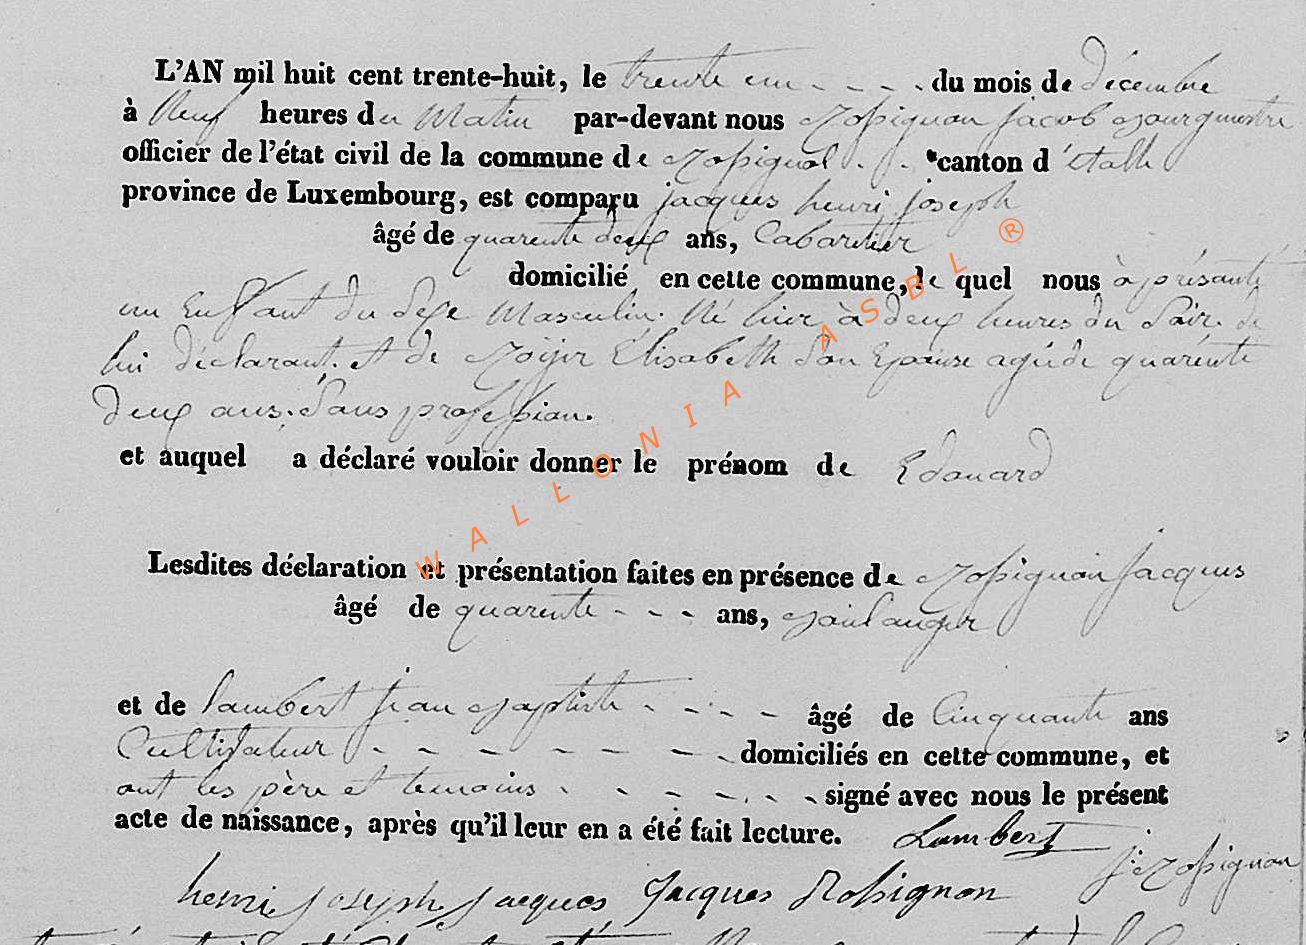 L'AN mil huit cent trente-huit, le trente un - - - - du mois de décembre
à Neuf heures du Matin par-devant nous Rossignon Jacob Bourgmestre
officier de l'état civil de la commune de Rossignol - - canton d'étalle
province de Luxembourg, est comparu jacques henri joseph
âgé de quarente deux ans, Cabaretier
domicilié en cette commune, le quel nous à présanté
un Enfant du sexe Masculin. Né hier à deux heures du Soir. de
lui déclarant. et de Elisabeth Son Epouse agée de quarente
deux ans. Sans profession.
et auquel a déclaré vouloir donner le prénom de Edouard
Lesdites déclaration et présentation faites en présence de Rossignon Jacques
âgé de quarente - - - ans, Boulanger
et de Lambert Jean Baptiste - - - - - âgé de Cinquante ans
Cultivateur - - - - - - - - domiciliés en cette commune, et
ont les père et temoins - - - - - - - signé avec nous le présent
acte de naissance, après qu'il leur en a été fait lecture. Lambert
J: Rossignon
henri joseph jacques Jacques Rossignon
WALLONIA ASBL ®